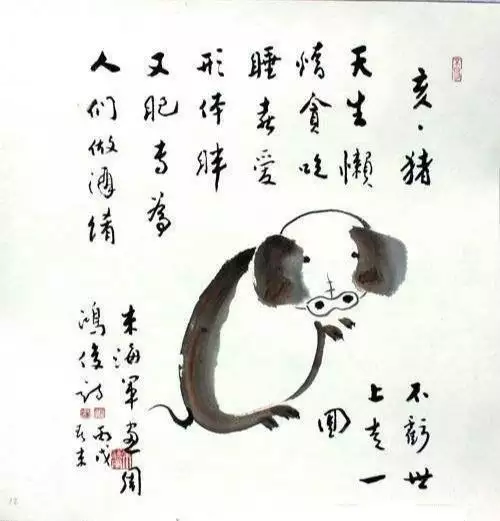 亥·猪
天生懒
惰贪吃
睡喜爱
形体胖
又肥专为
人们做酒肴
不虧世
上走一
圈
朱海军画周
鸿俊诗
丙戌